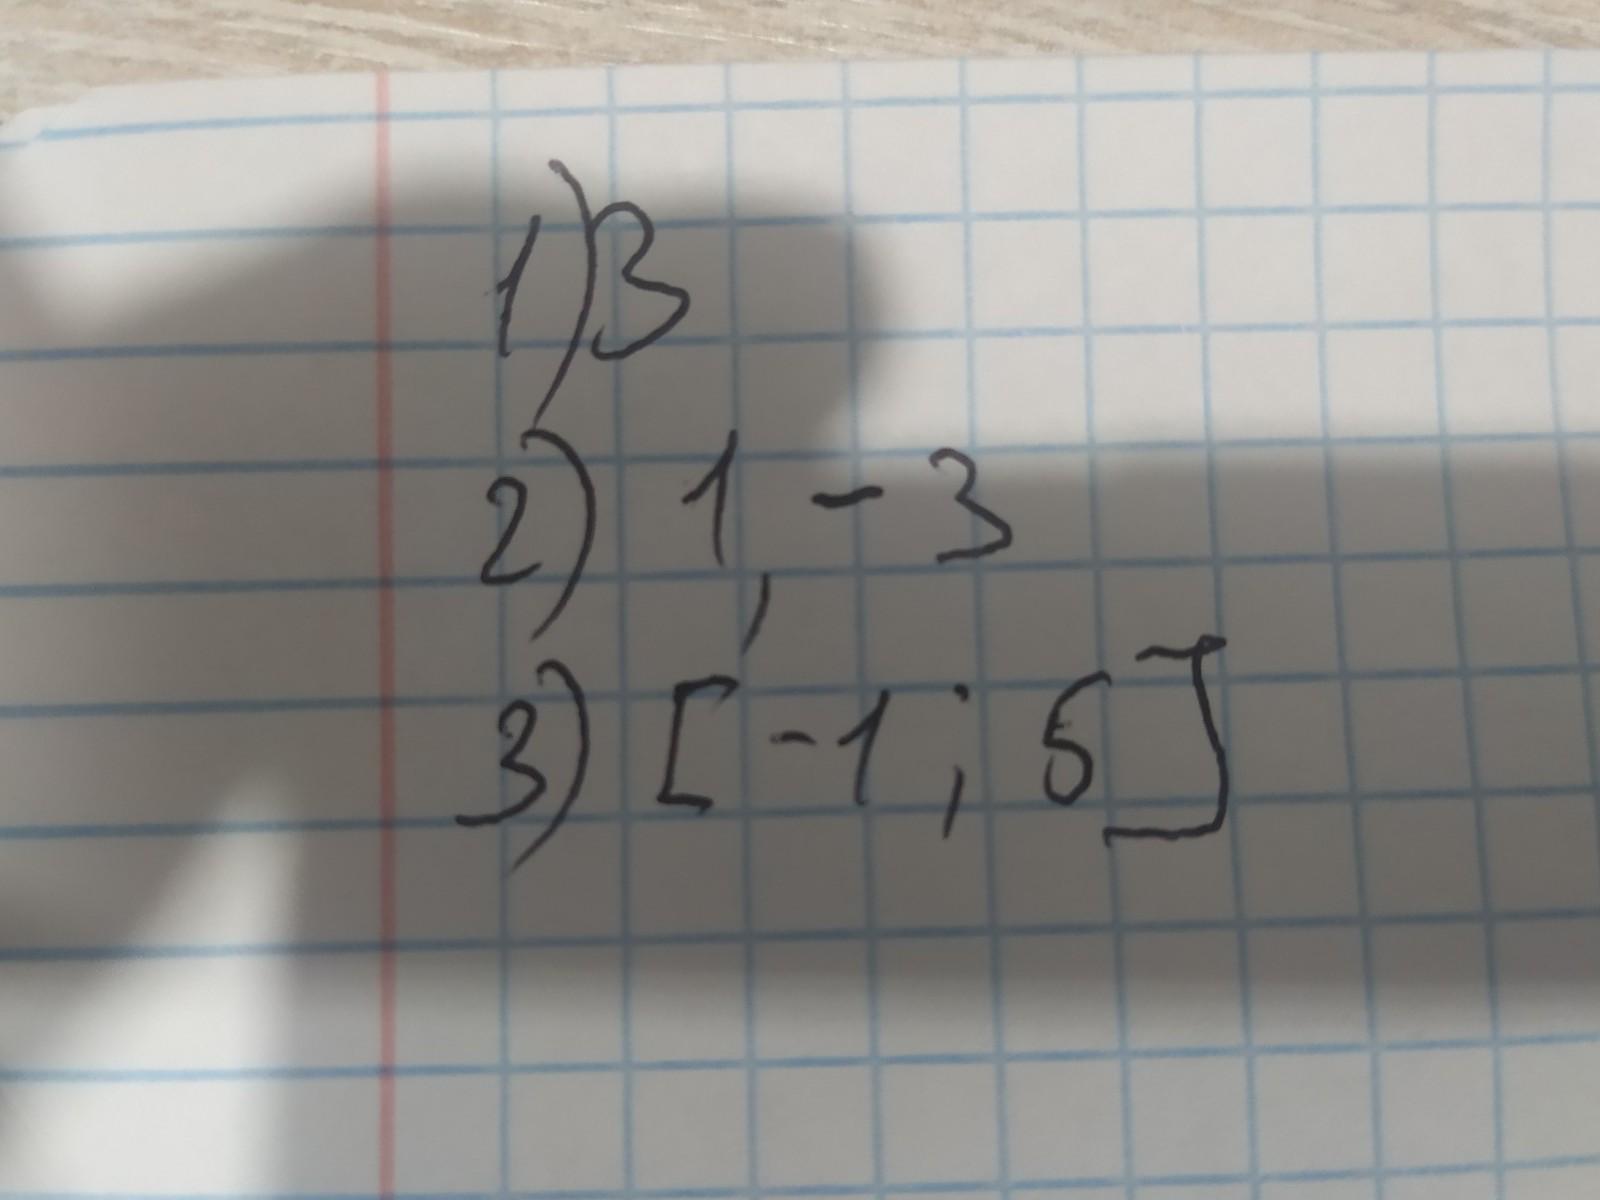 1) 3
2) 1, -3
3) [-1; 5]